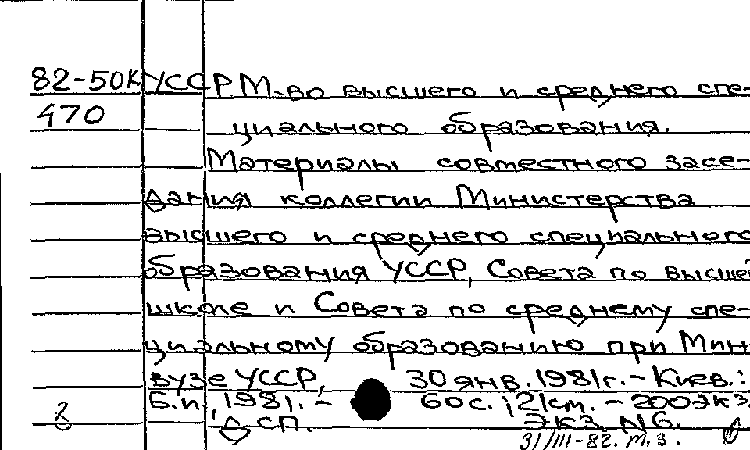 82-50К УССР М-во высшего и среднего спе-
470 циального образования.
Материалы совместного засе-
дания коллегии Министерства
высшего и среднего специального
образования УССР, Совета по высшей
школе и Совета по среднему спе-
циальному образованию при Мин-
вузе УССР, 30 янв. 1981г. - Киев.:
Б.и., 1981. - 60с.; 21см. - 200экз.
2 ДСП. Экз. №6.
31/III-82. т.з.